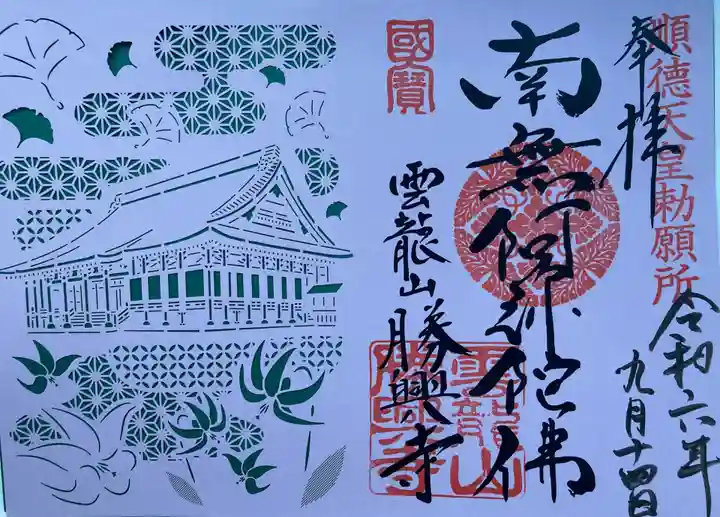 順德天皇勅願所
奉拝
令和六年
九月十四日
南無阿弥陀佛
國寶
雲龍山勝興寺
雲龍山
勝興寺